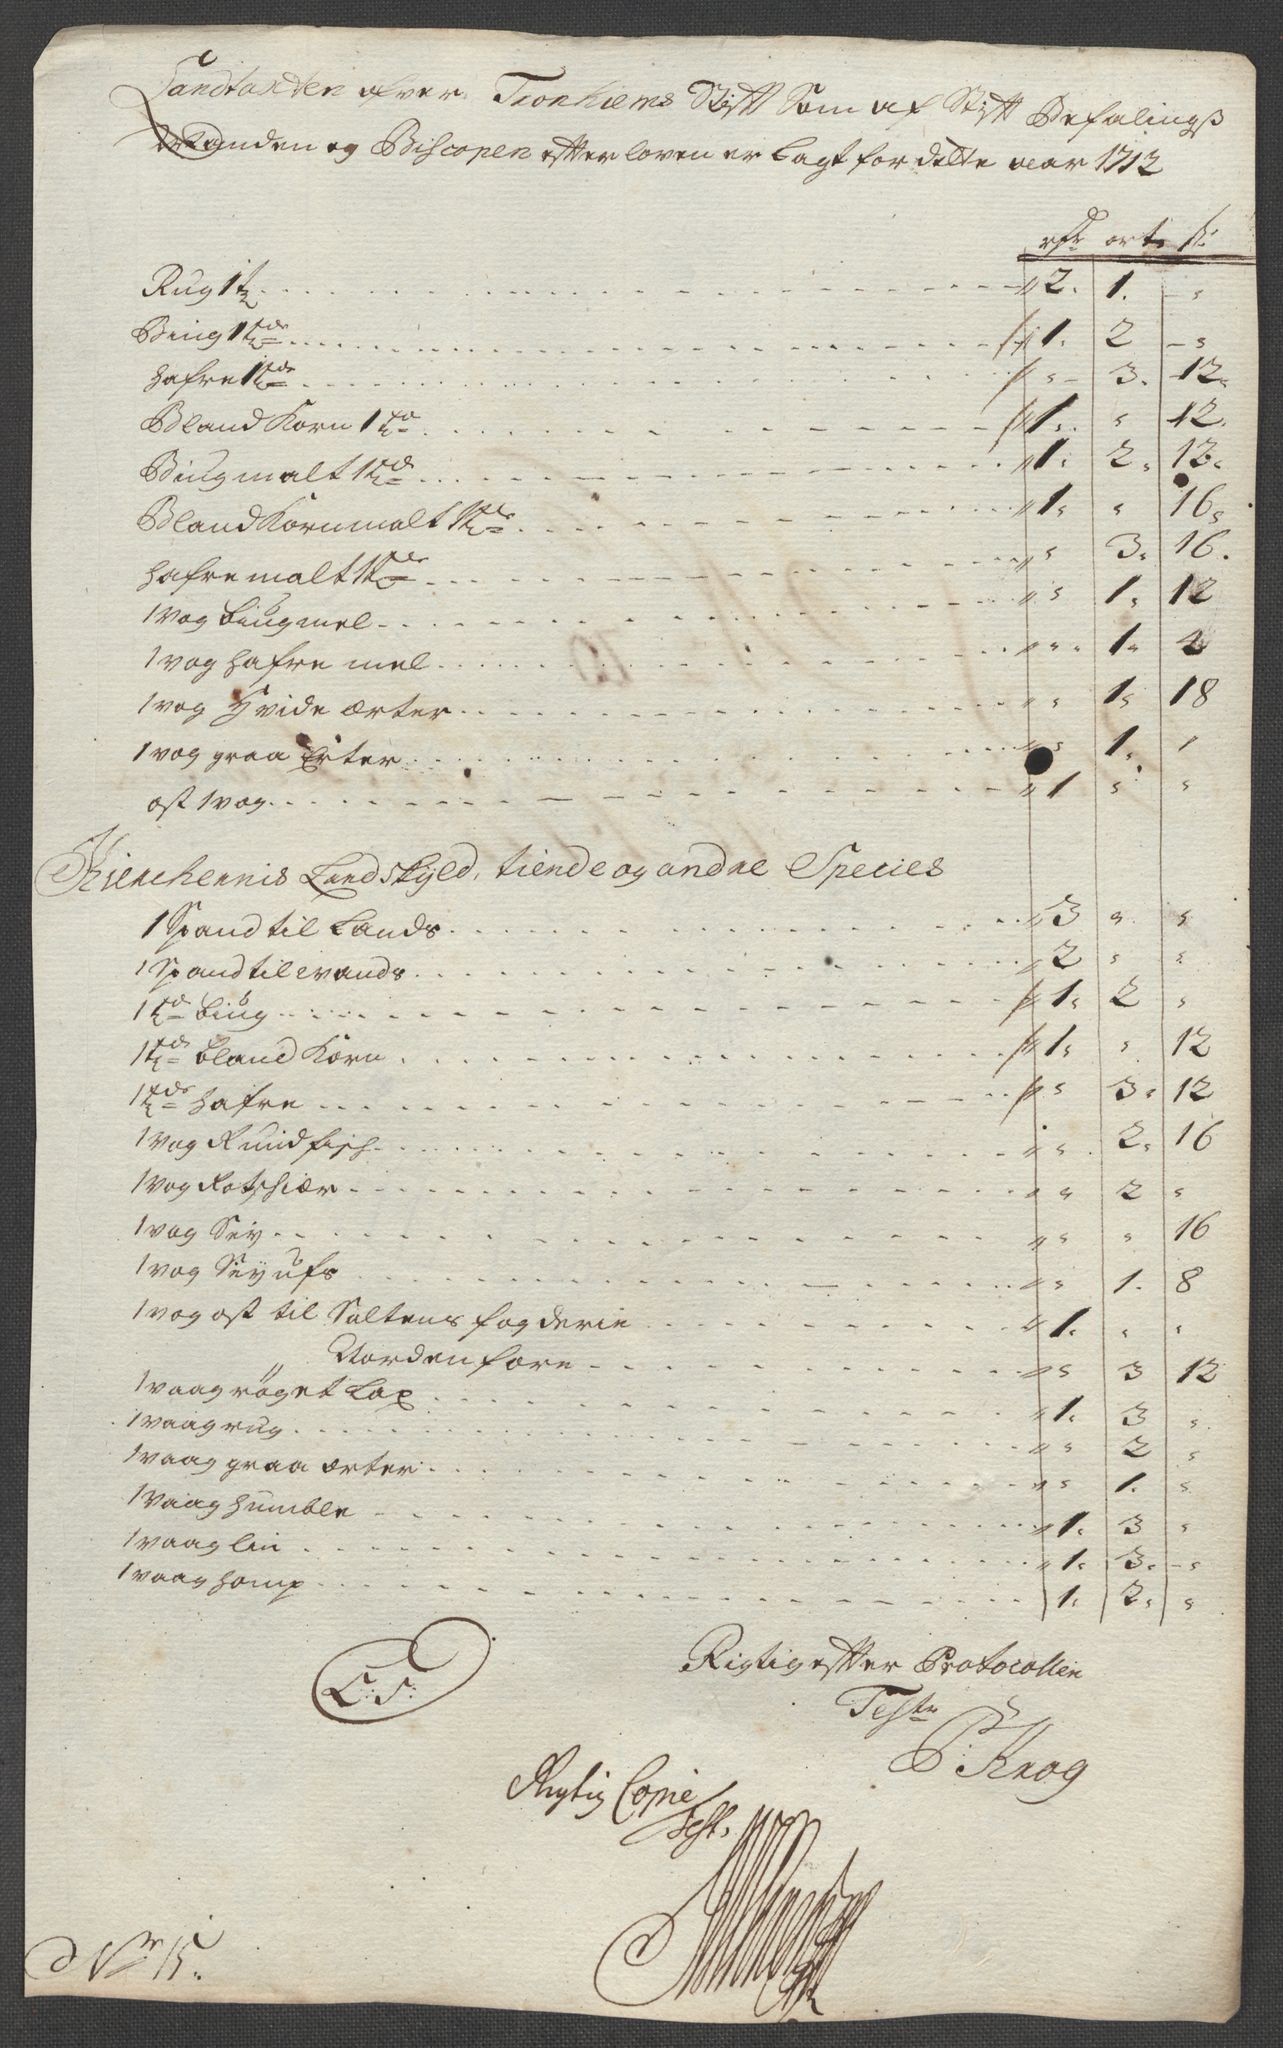 Landtaxten ofver Tronhiems Stift Som af Stift Befalingß
Manden og Biscopen effter loven er Lagt for dette aar 1712
rdr ort s:
Rug 1 t " 2. 1. - "
Biug 1 tde " 1. 2 - "
hafre 1 tde " - 3. 12.
Bland Korn 1 td " 1. " 12.
Biug malt 1 td " 1. 2. 12.
Bland Korn malt 1 tde " 1. " 16.
hafre malt 1 tde " " 3. 16.
1 vog biug mel " " 1. 12
1 vog hafre mel " " 1. 4
1 vog Hvide ærter " " 1. 18
1 vog graa Erter " " 1.
ost 1 vog " 1 " "
Kierchernis Landskyld, tiende og andre Species
1 Spand til Lands " 3 " "
1 Spand til vands " 2 " "
1 td biug " 1. 2 "
1 tde bland Korn " 1. " 12
1 tde hafre " " 3. 12
1 vog Rundfisch " " 2. 16
1 vog Rotschiær " " 2 "
1 vog Sey " " " 16
1 vog Sey ufs " " 1. 8
1 vog ost til Saltens fogderie " 1. " "
Norden fore " " 3 12
1 vaag röget Lax " 1. 3 "
1 vaag rug " " 2 "
1 vaag graa ærter " " 1. "
1 vaag humble " 1. 3 "
1 vaag lin " 1. 3. - "
1 vaag hamp 1. 2. "
L: S:
Rigtig effter Protocollen
Teste
P: Krog
Rigtig Copie
Test.
No 15.